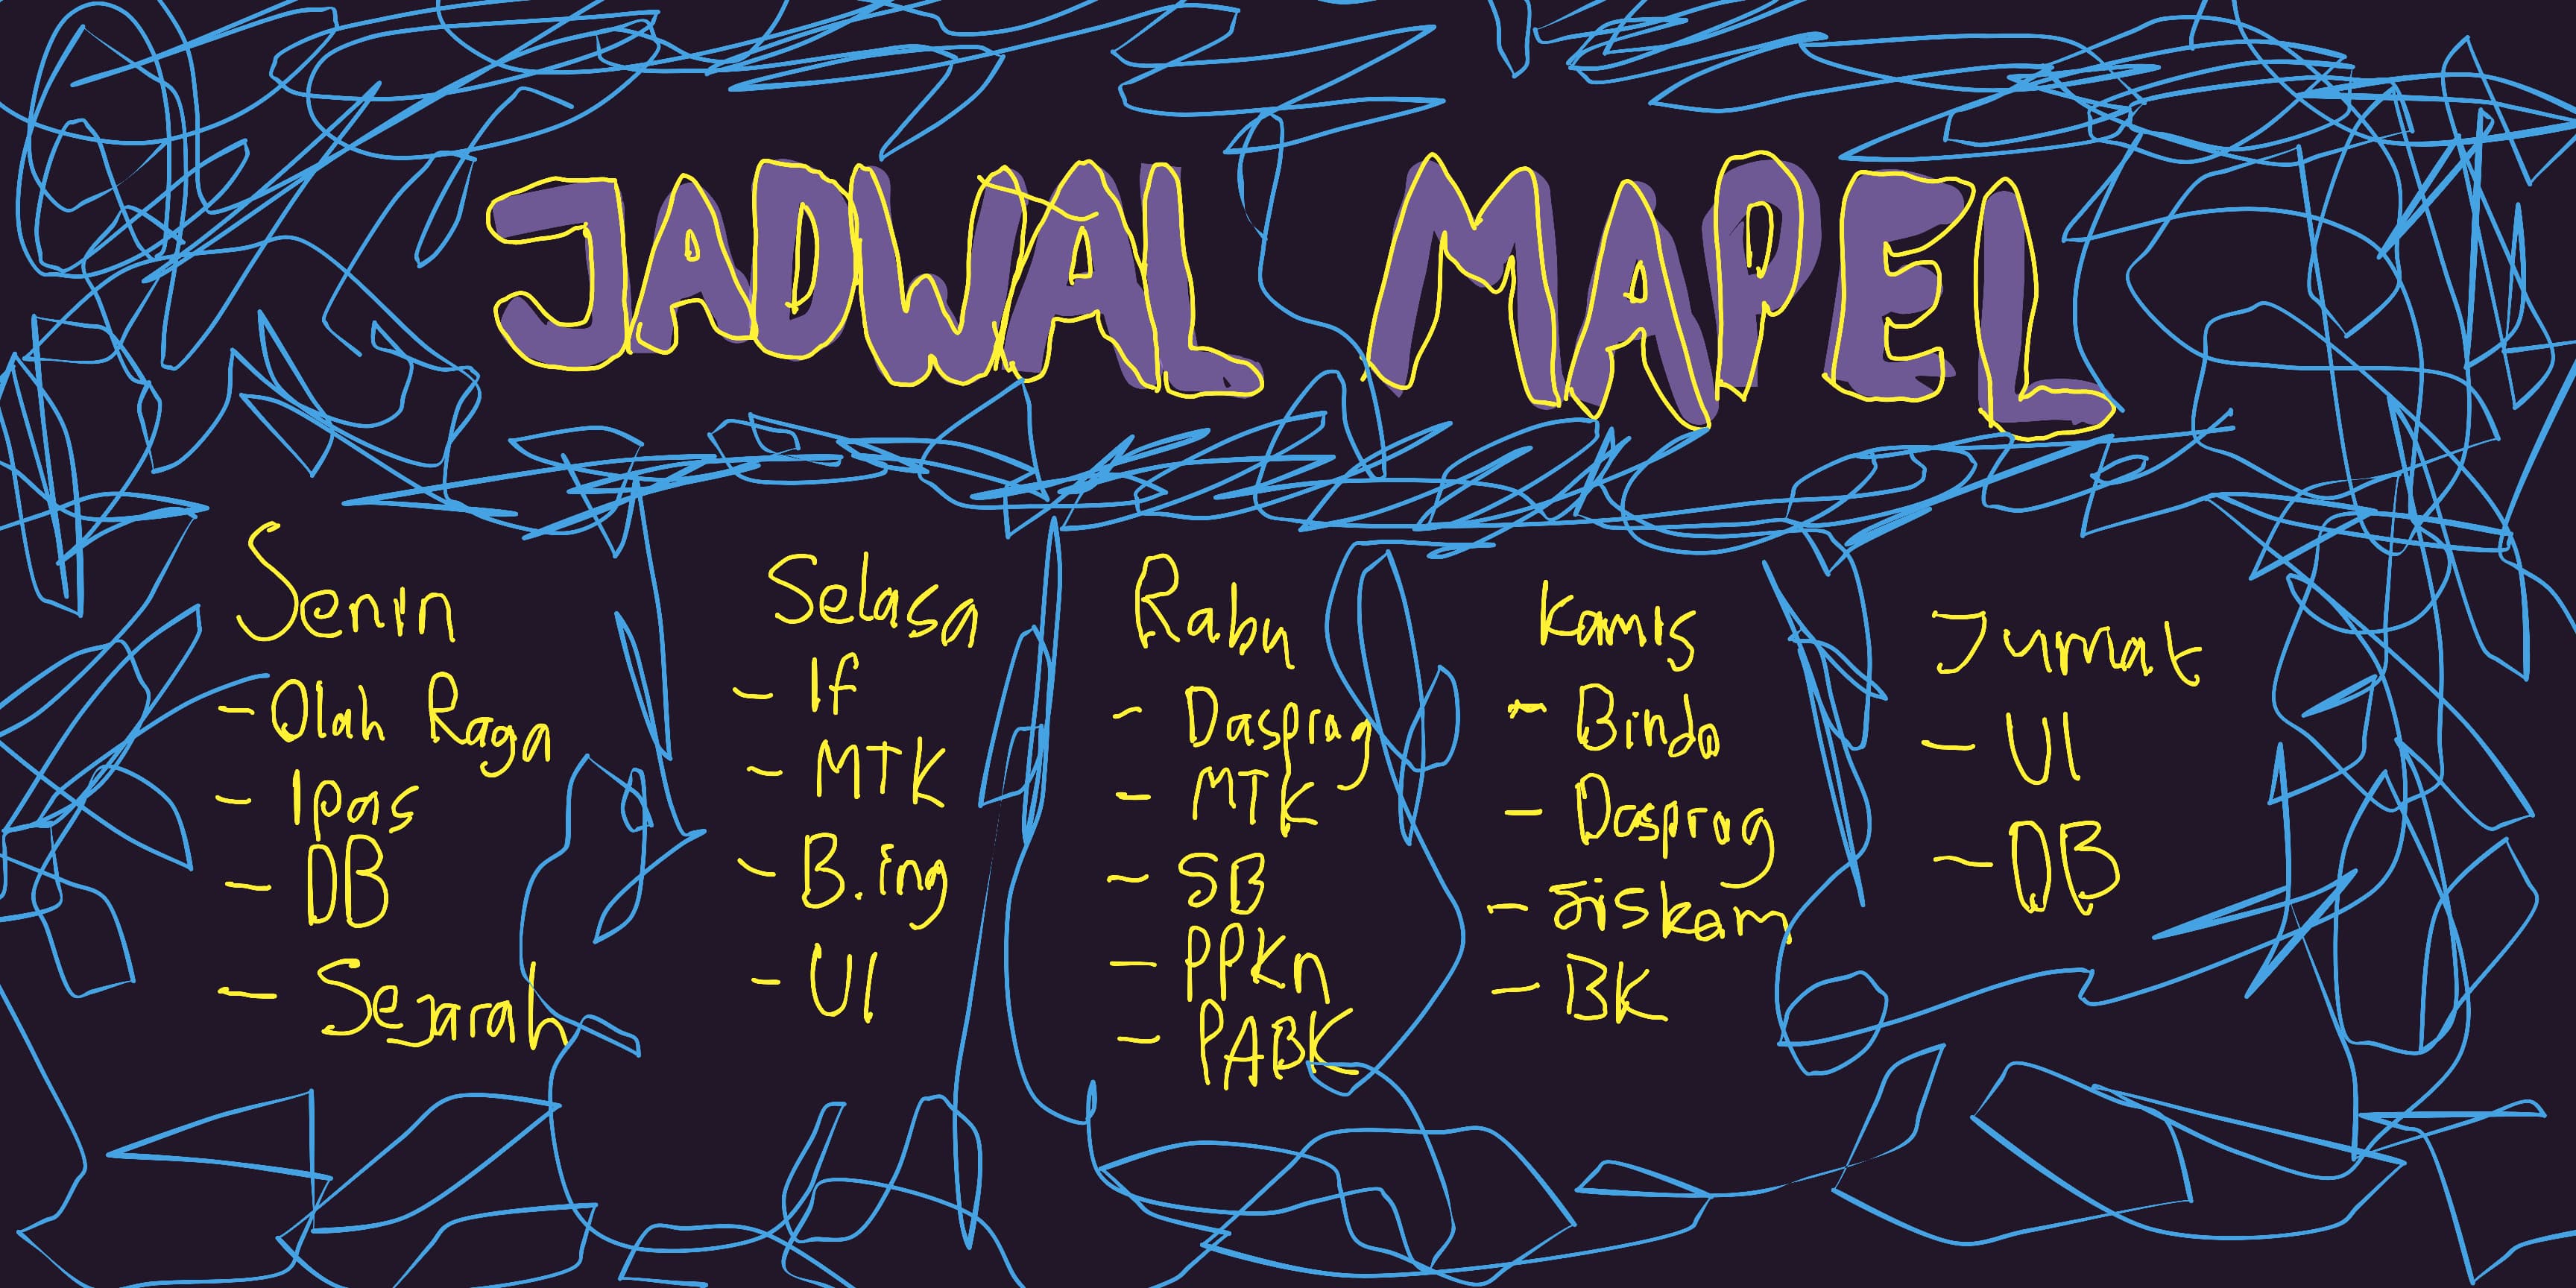 JADWAL MAPEL
Senin
- Olah Raga
- Ipas
- DB
- Sejarah
Selasa
- If
- MTK
- B.ing
- UI
Rabu
- Dasprog
- MTK
- SB
- PPKn
- PABK
Kamis
- Bindo
- Dasprog
- Jiskam
- BK
Jumat
- UI
- DB